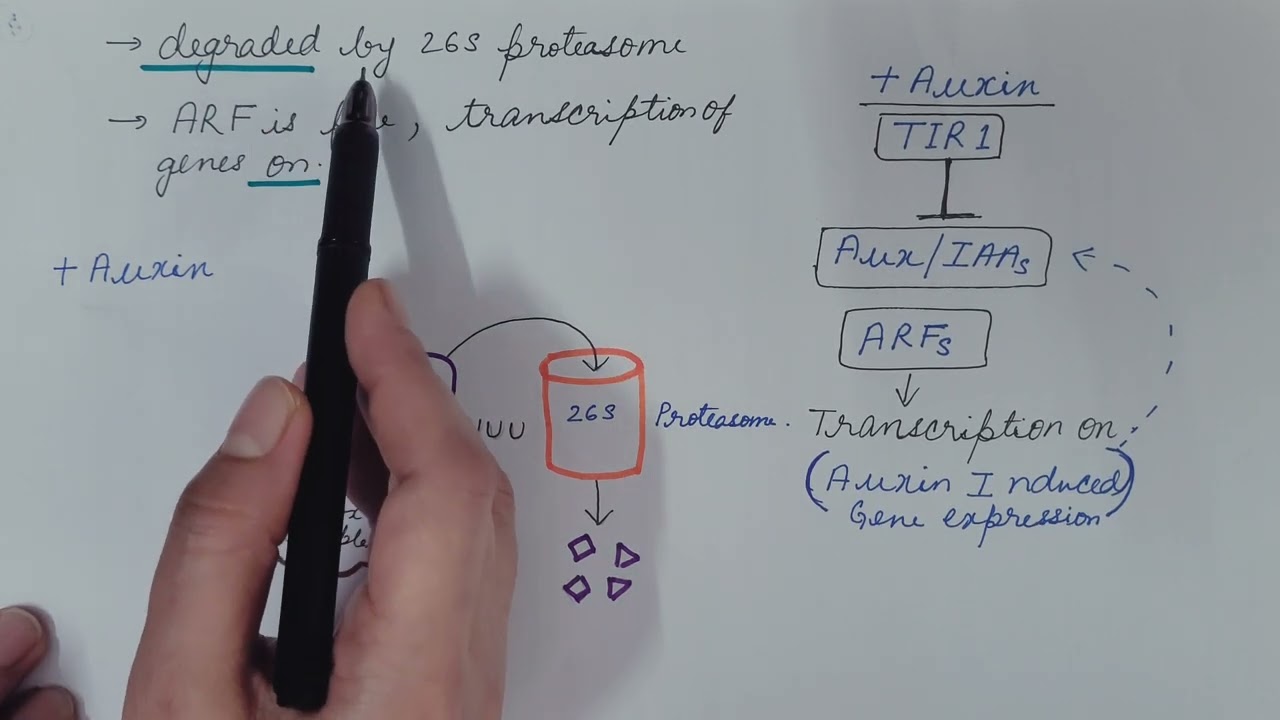 → degraded by 26S proteasome
→ ARF is , transcription of
genes on.
+ Auxin
26S
Proteasome.
+ Auxin
TIR1
Aux/IAAs
ARFs
Transcription on
(Auxin Induced)
Gene expression